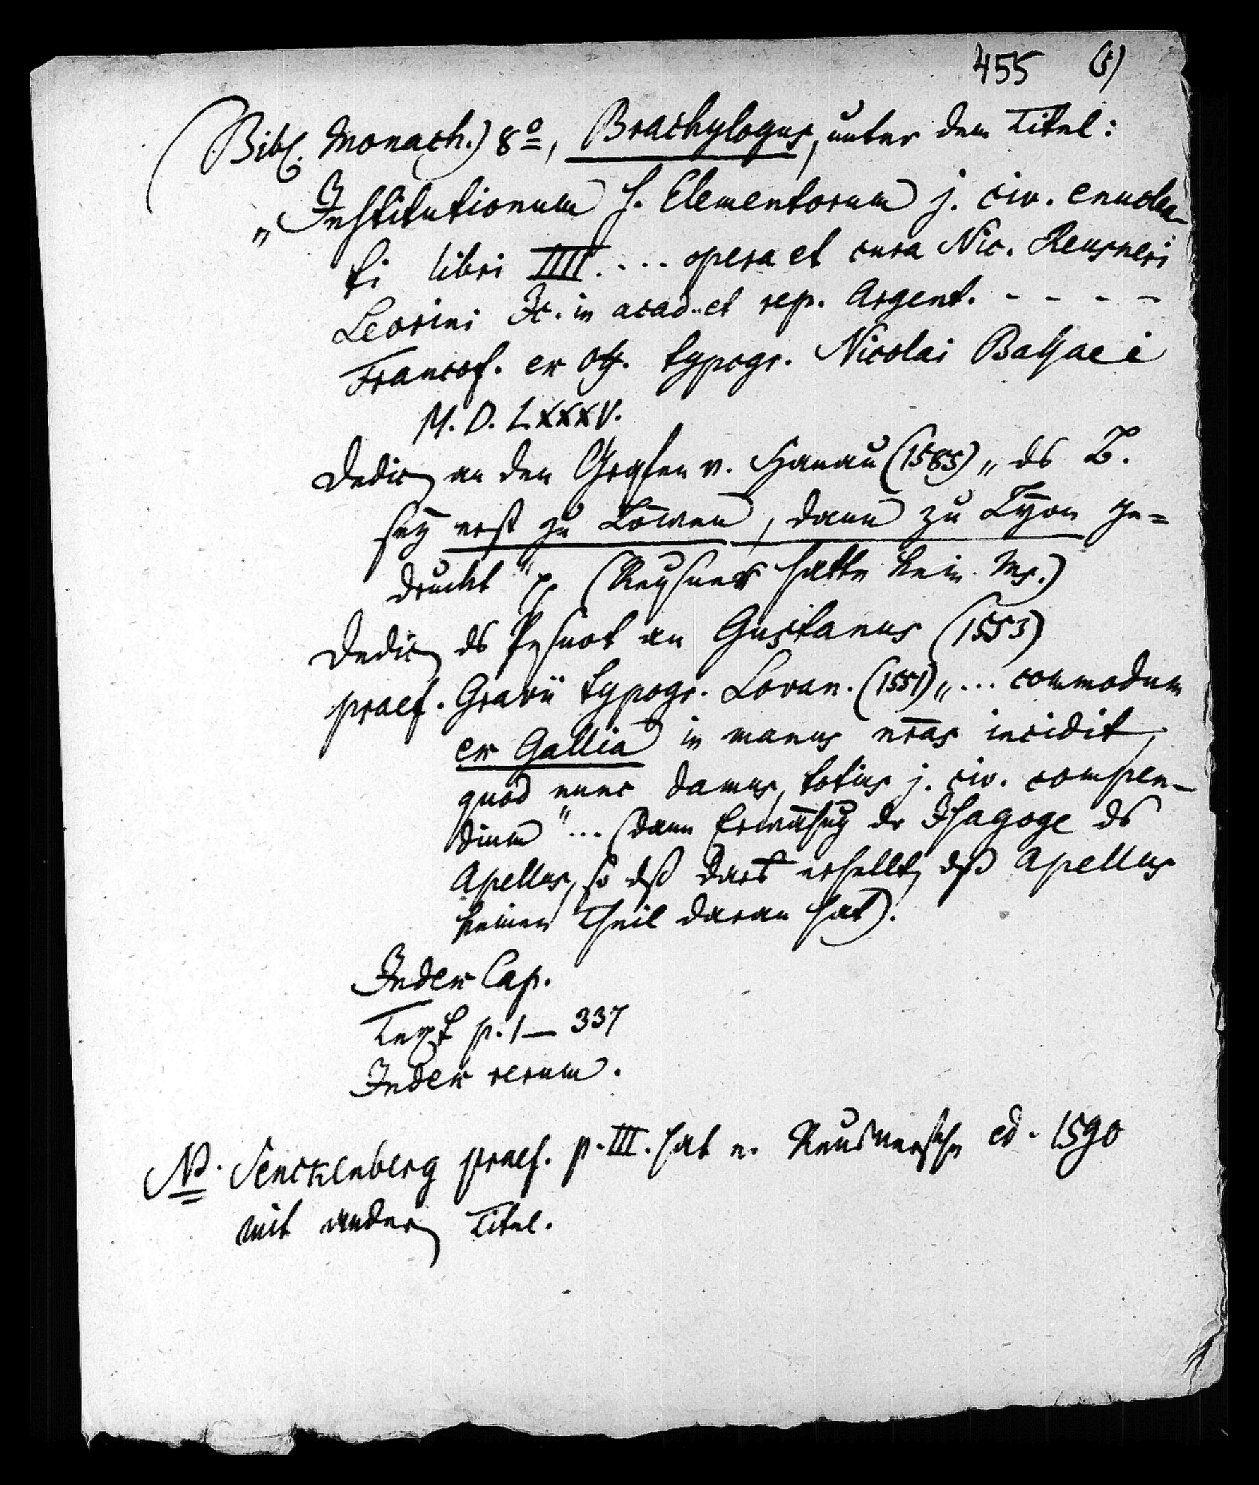 455 (5)
(Bibl. Monach.) 8º, Brachylogus, unter dem Titel:
„Institutionum s. Elementorum j. civ. enuclea-
ti libri IIII .... opera et cura Nic. Reusneri
Leorini Jc. in acad. et rep. Argent. - - - -
Francof. ex off. typogr. Nicolai Bassaei
M. D. LXXXV.
Dedic. an den Grafen v. Hanau (1585) „ds B.
sey erst zu Löwen, dann zu Lyon ge=
druckt" (Reusner hatte kein Ms.)
Dedic. ds Pesnot an Gustanus (1553)
praef. Gravii typogr. Lovan. (1551) „... commodum
ex Gallia in manus nras incidit,
quod nunc damus, totius j. civ. compen-
dium" ... (dann Erwähng der Isagoge ds
Apellus, so dß dort erhellt, dß Apellus
keinen Theil daran hat).
Index Cap.
Text p. 1 — 337
Index rerum.
NB. Senckenberg praef. p. III. hat e. Reusnersche ed. 1590
mit anderm Titel.